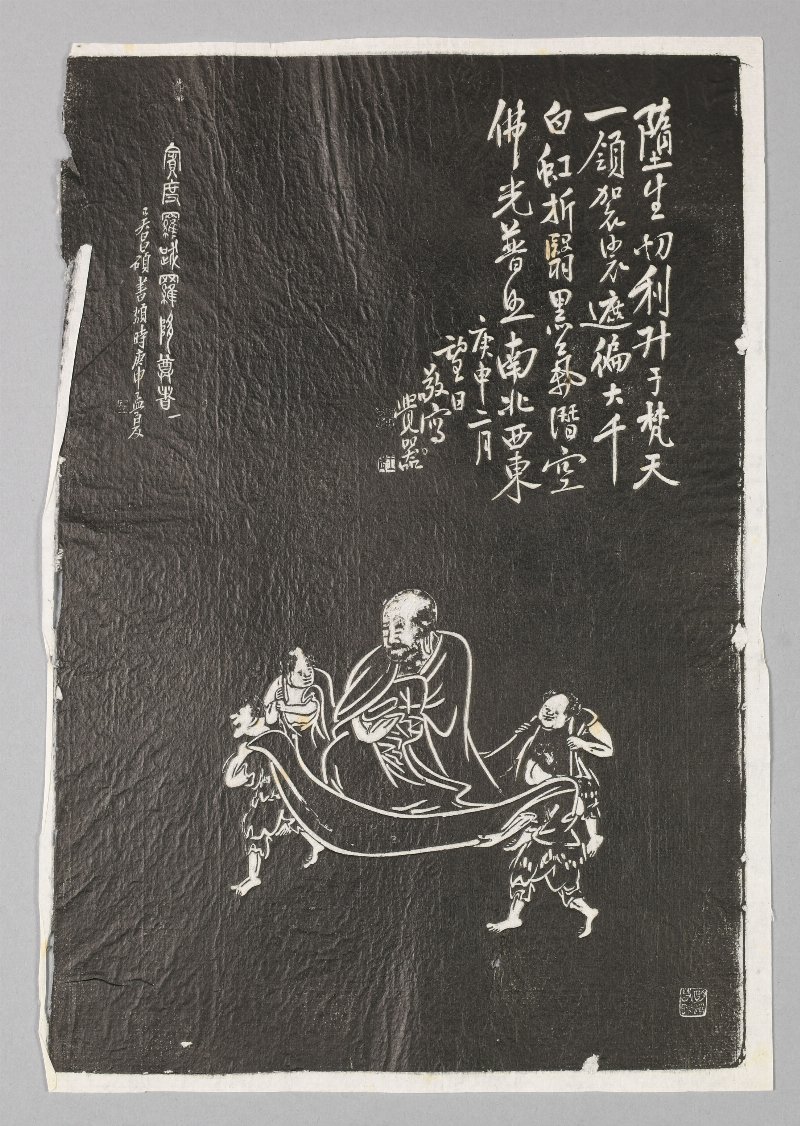 隨生忉利升于梵天
一領袈裟遮徧大千
白虹折翳黑氣潛空
佛光普照南北西東
庚申二月
望日
敬寫
覺器
賓度羅跋羅隋尊者一
吳昌碩書頌時庚申孟夏